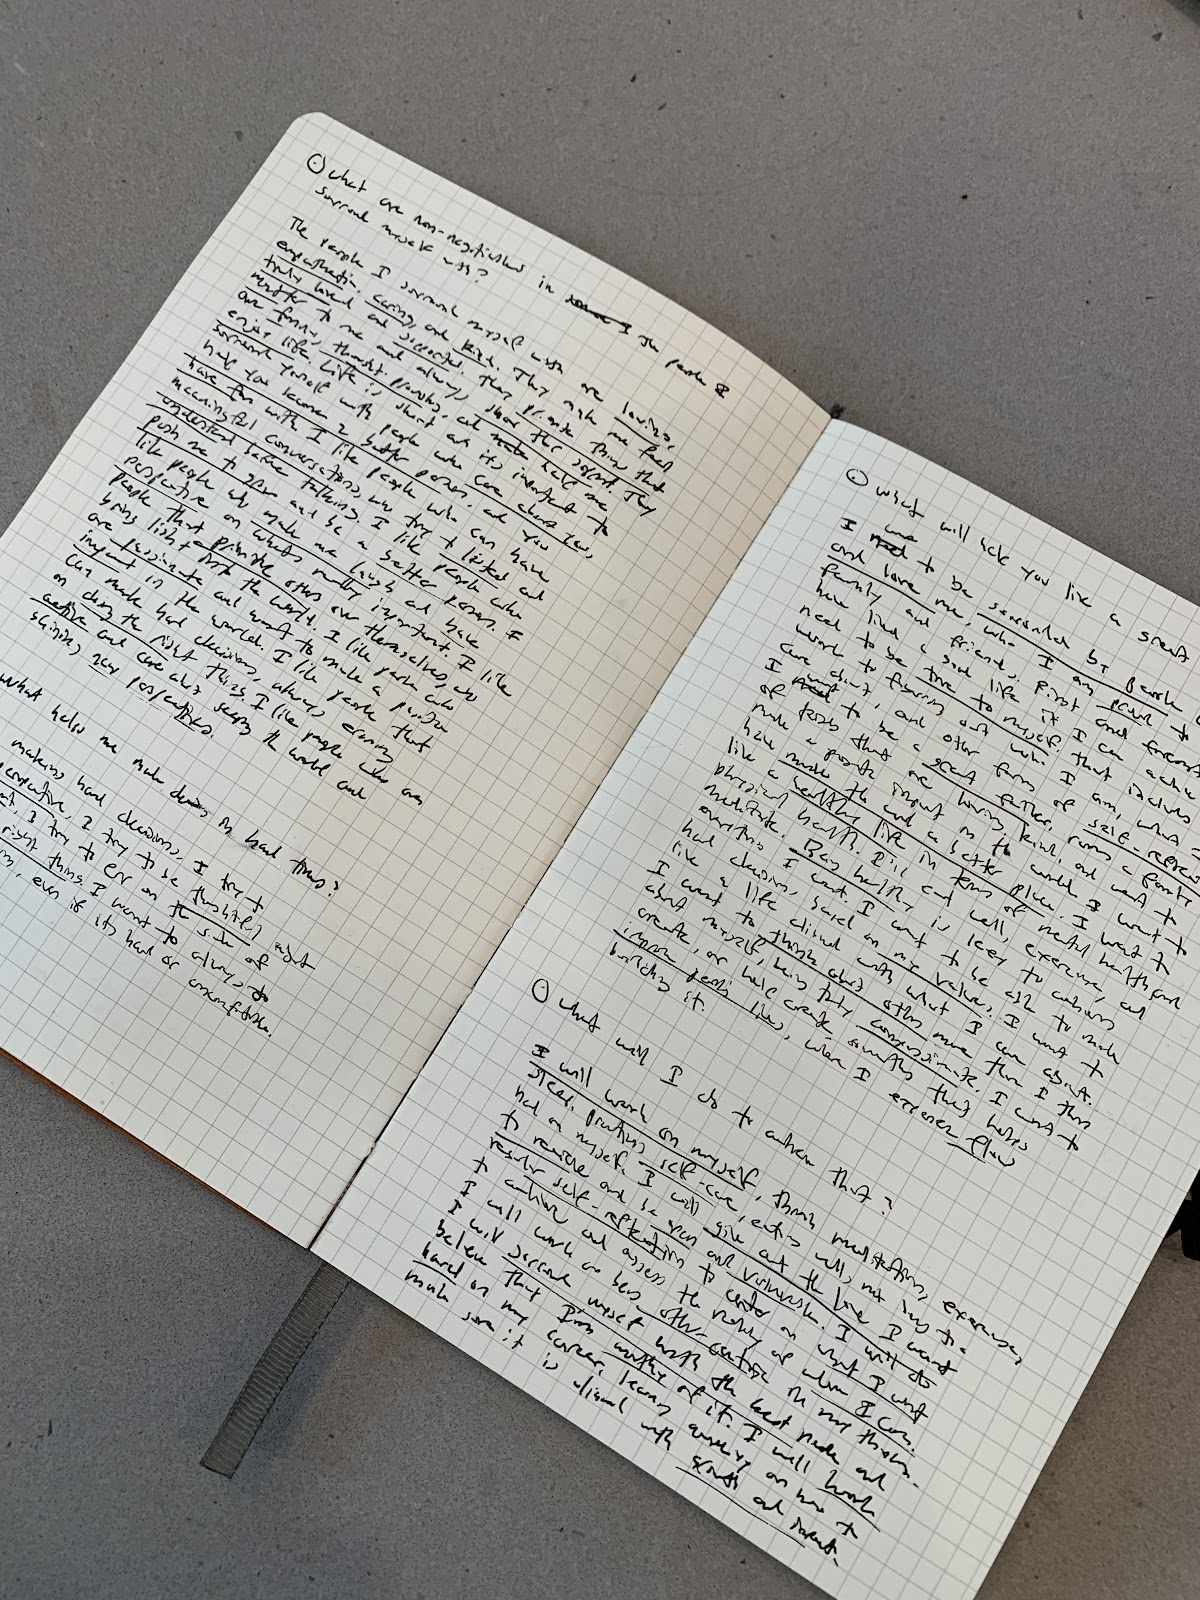 What are non-negotiables in the people I
surround myself with?
The people I surround myself with are loving,
empathetic, caring, and kind. They make me feel
truly loved and supported. They prioritize things that
matter to me and always show their support. They
are funny, thought-provoking, and help me
enjoy life. Life is short and it's important to
surround yourself with people who care about you,
help you become a better person, and you
have fun with. I like people who can have
meaningful conversations, who try to listen and
understand before talking. I like people who
push me to grow and be a better person. I
like people who make me laugh and have
perspective on what's really important. I like
people that prioritize others over themselves, who
bring light into the world. I like people who
are passionate and want to make a positive
impact in the world. I like people that
can make hard decisions, always
on doing the right thing. I like people who are
active and care about seeing the world and
gaining new perspectives.
What helps me make decisions in hard times?
making hard decisions, I try to
perspective, I try to be thoughtful about
I try to err on the side of
right thing. I want to always do
even if it's hard or
uncomfortable.
What will help you live a great
I want to be surrounded by people
and love me, who I am proud to
family and friends. First and foremost
have lived a good life if I can achieve
need to be true to myself. That includes
work to figuring out who I am, what I
care about, and other forms of self-reflection
I want to be a great father, raise a family
of kids that are loving, kind, and want to
make a positive impact in the world. I want to
have made the world a better place. I want to
live a healthy life in terms of mental health and
physical health. I'll eat well, exercise, and
meditate. Being healthy is key to achieving
everything I want. I want to be able to make
hard decisions, based on my values. I want to
live a life aligned with what I care about.
I want to think about others more than I think
about myself, being truly compassionate. I want to
create, or help create something that helps
improve people's lives, where I experience flow
building it.
What will I do to achieve that?
I will work on myself, through meditation, exercise,
sleep, practicing self-care, eating well, not being too
hard on myself. I will give out the love I want
to receive and be open and vulnerable. I will do
regular self-reflection to center on what I want
to achieve and assess the reality of where I am.
I will work on being other-centric in my thinking.
I will surround myself with the best people and
believe that I'm worthy of it. I will work
hard on my career, learning on how to
make sure it is aligned with growth and impact.